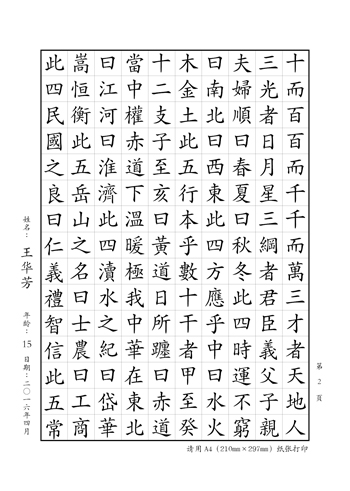 十而百百而千千而萬三才者天地人
三光者日月星三綱者君臣義父子親
夫婦順曰春夏曰秋冬此四時運不窮
曰南北曰西東此四方應乎中曰水火
木金土此五行本乎數十干者甲至癸
十二支子至亥曰黃道日所躔曰赤道
當中權赤道下溫暖極我中華在東北
曰江河曰淮濟此四瀆水之紀曰岱華
嵩恒衡此五岳山之名曰士農曰工商
此四民國之良曰仁義禮智信此五常
姓名：王华芳 年龄：15 日期：二〇一六年四月
第 2 页
请用A4（210mm×297mm）纸张打印